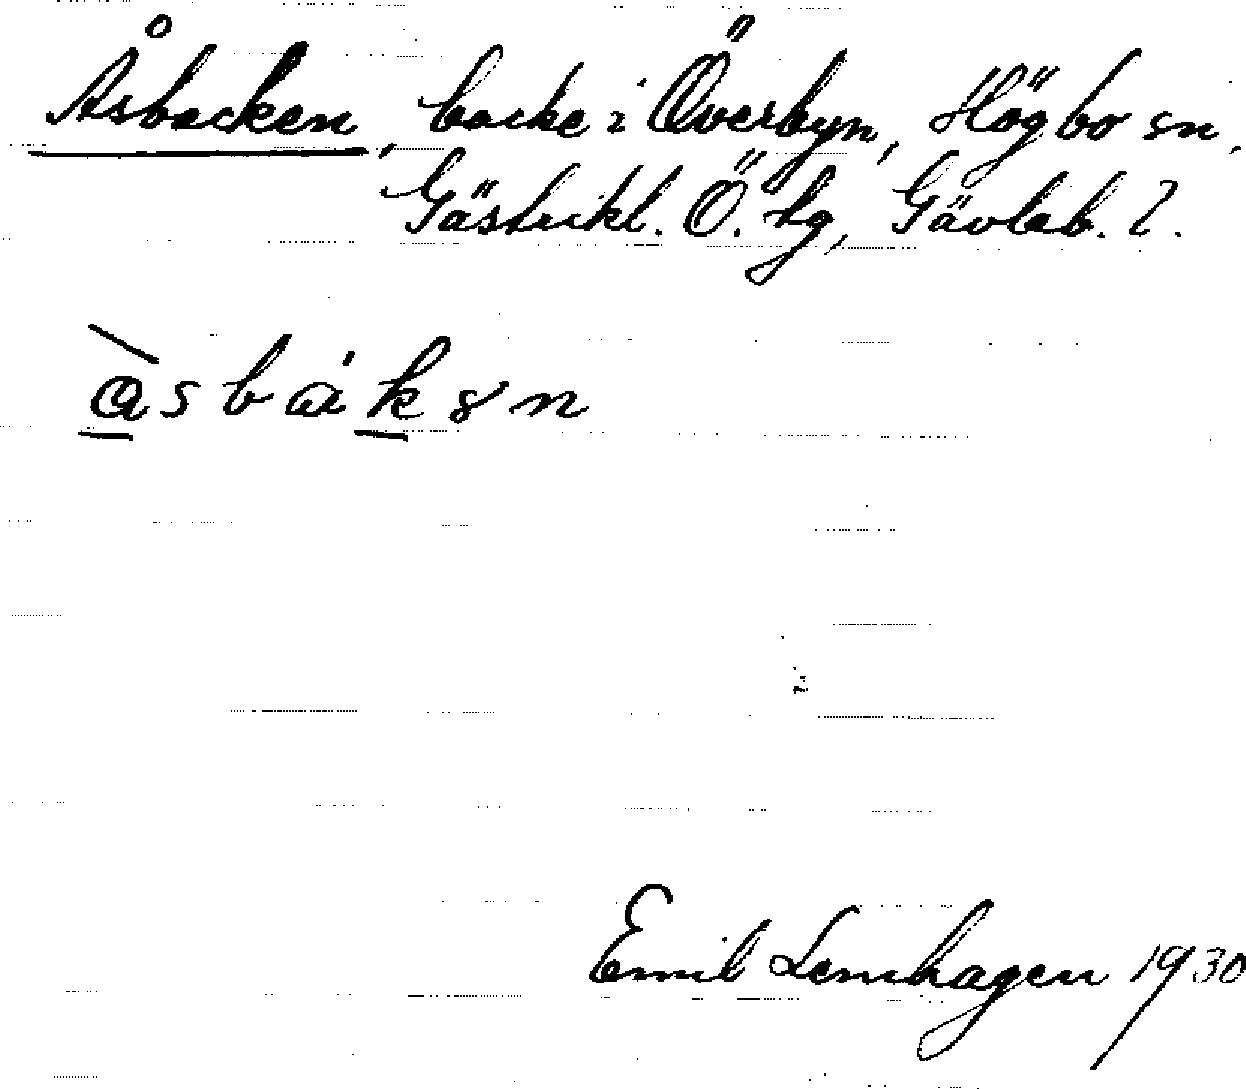 Åsbacken, backe i Överbyn, Högbo sn,
Gästrikl. Ö. tg, Gävleb. l.
åsbákən
Emil Lenhagen 1930